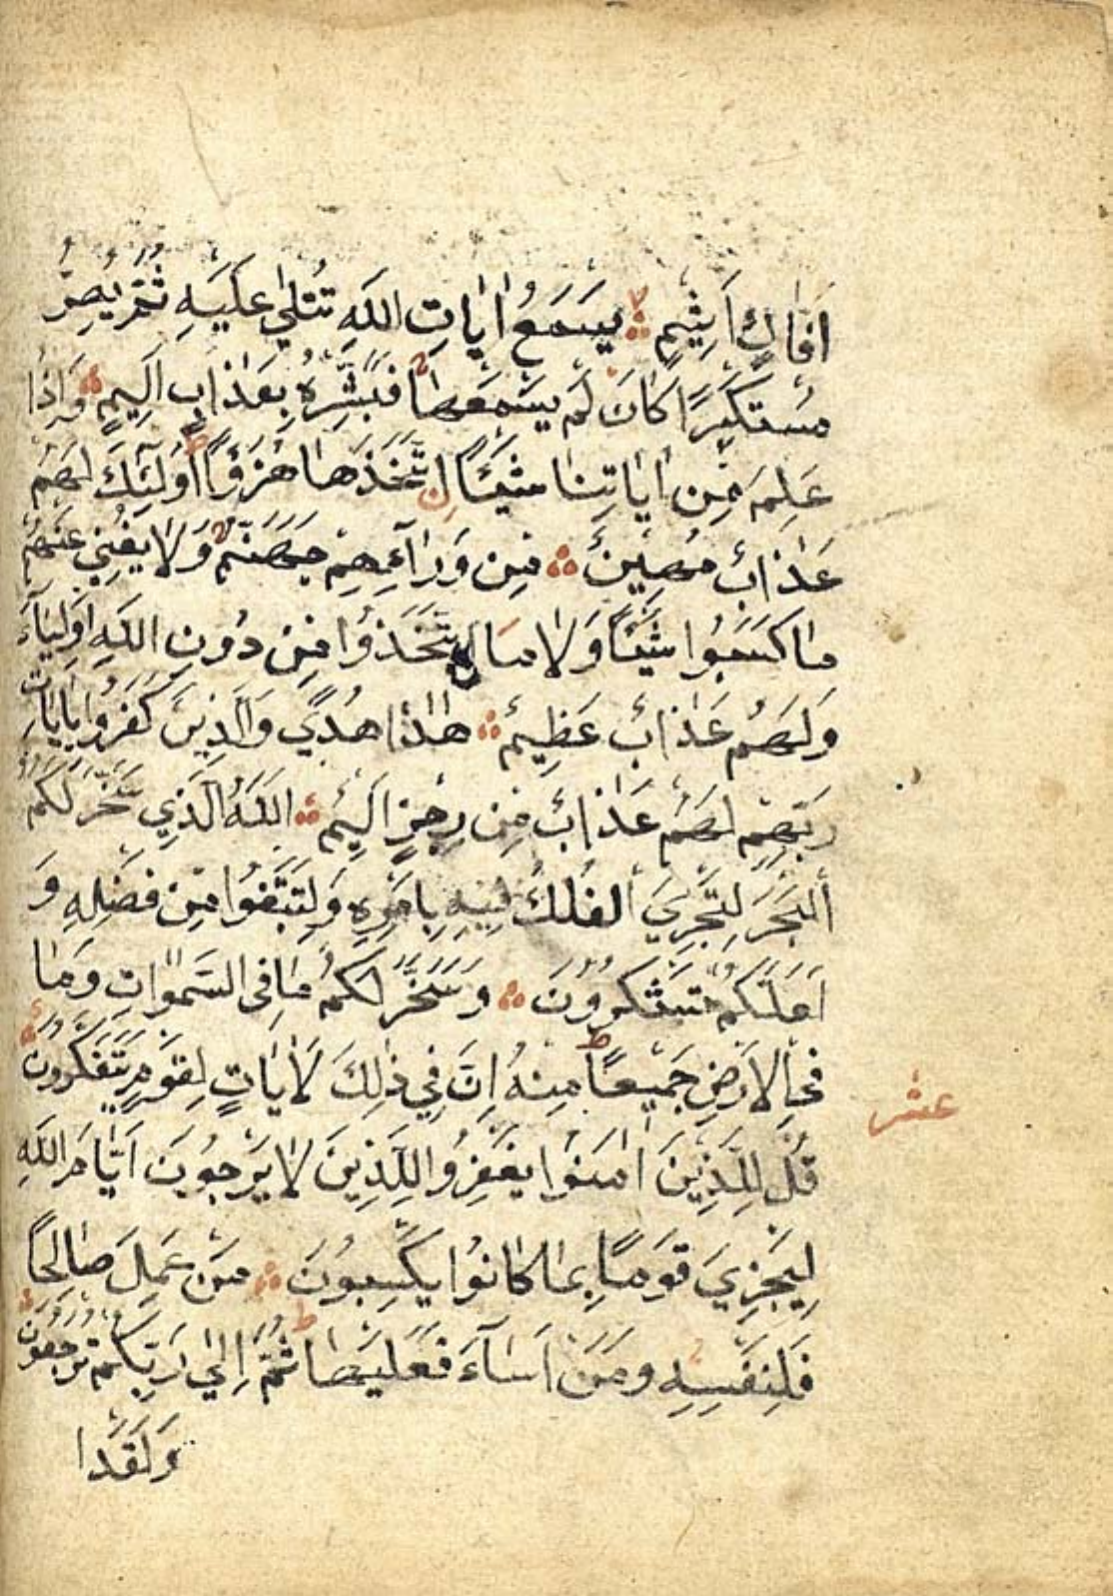 اَفَّاكٍ اَثِيمٍ يَسْمَعُ اٰيَاتِ اللّٰهِ تُتْلٰي عَلَيْهِ ثُمَّ يُصِرُّ
مُسْتَكْبِرًا كَاَنَ لَمْ يَسْمَعْهَا فَبَشِّرْهُ بِعَذَابٍ اَلِيمٍ وَاِذَا
عَلِمَ مِنْ اٰيَاتِنَا شَيْئًا اِتَّخَذَهَا هُزُوًا اُولٰئِكَ لَهُمْ
عَذَابٌ مُهِينٌ مِنْ وَرَآءِهِمْ جَهَنَّمُ وَلَا يُغْنِي عَنْهُمْ
مَا كَسَبُوا شَيْئًا وَلَا مَا اتَّخَذُوا مِنْ دُونِ اللّٰهِ اَوْلِيَآءَ
وَلَهُمْ عَذَابٌ عَظِيمٌ هٰذَا هُدًي وَالَّذِينَ كَفَرُوا بِاٰيَاتِ
رَبِّهِمْ لَهُمْ عَذَابٌ مِنْ رِجْزٍ اَلِيمٌ اَللّٰهُ الَّذِي سَخَّرَ لَكُمُ
الْبَحْرَ لِتَجْرِيَ الْفُلْكُ فِيهِ بِاَمْرِهِ وَلِتَبْتَغُوا مِنْ فَضْلِهِ وَ
لَعَلَّكُمْ تَشْكُرُونَ وَسَخَّرَ لَكُمْ مَا فِي السَّمٰوَاتِ وَمَا
فِي الْاَرْضِ جَمِيعًا مِنْهُ اِنَّ فِي ذٰلِكَ لَاٰيَاتٍ لِقَوْمٍ يَتَفَكَّرُونَ
عشر
قُلْ لِلَّذِينَ اٰمَنُوا يَغْفِرُوا لِلَّذِينَ لَا يَرْجُونَ اَيَّامَ اللّٰهِ
لِيَجْزِيَ قَوْمًا بِمَا كَانُوا يَكْسِبُونَ مَنْ عَمِلَ صَالِحًا
فَلِنَفْسِهِ وَمَنْ اَسَآءَ فَعَلَيْهَا ثُمَّ اِلٰي رَبِّكُمْ تُرْجَعُونَ
وَلَقَدْ ا